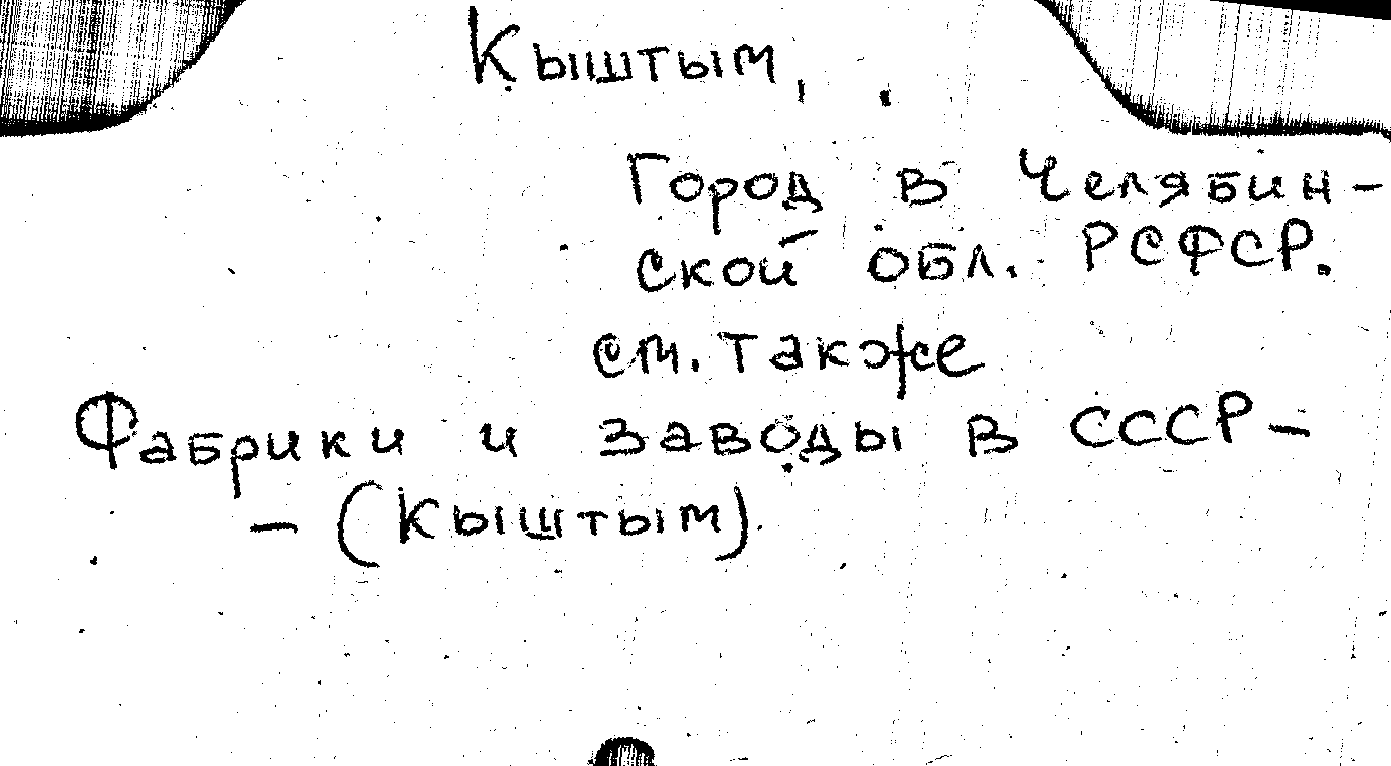 Кыштым, .
Город в Челябин-
ской обл. РСФСР.
см. также
Фабрики и заводы в СССР -
- (Кыштым)